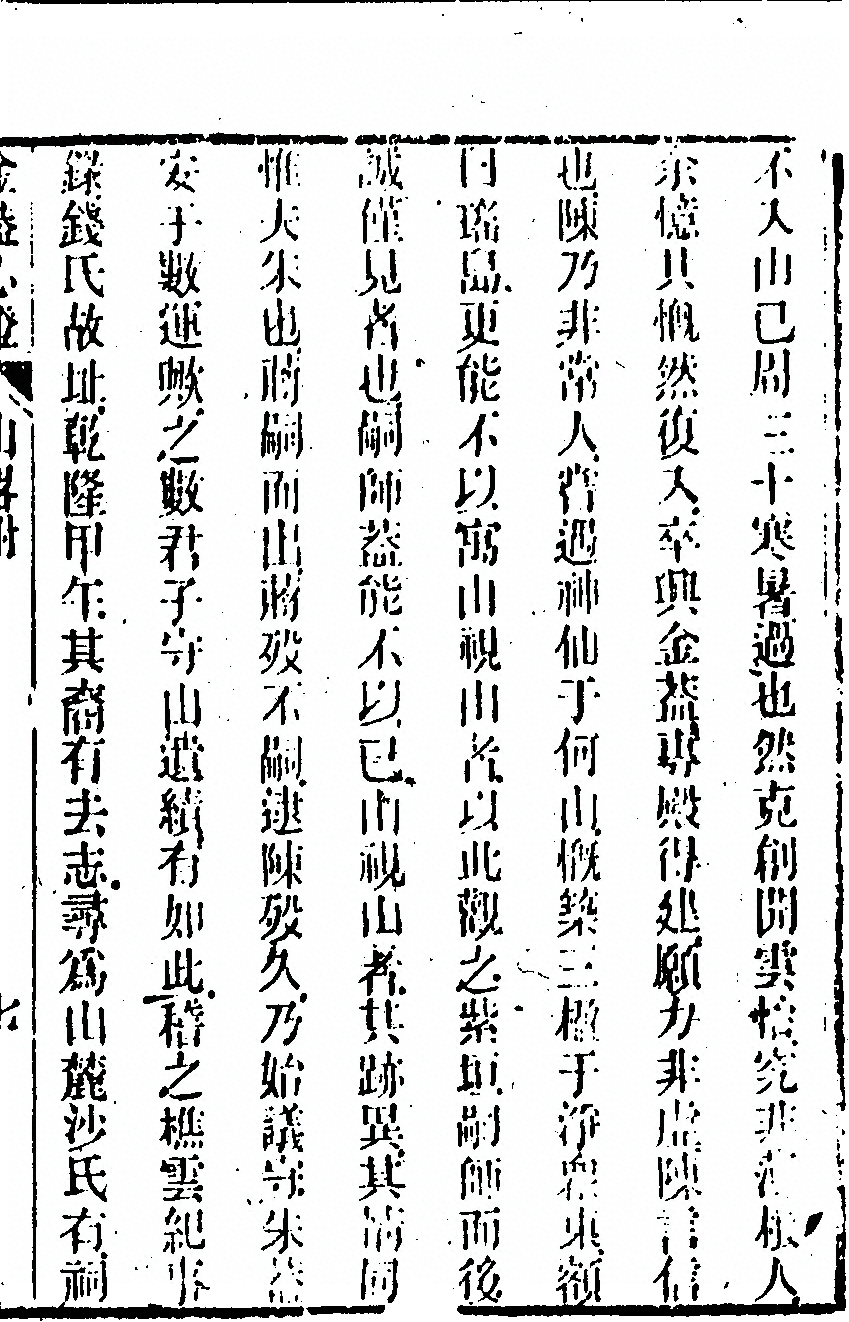 不入山已周三十寒暑過也然克創開雲怡究非淺根人
余憶其慨然復入卒興金蓋專殿得处願力非虛陳言信
也陳乃非常人嘗遇神仙于何山慨築三楹于淨眾東額
曰瑤島更能不以寓山視山者以此觀之紫垣嗣師而後
誠僅見者也嗣師蓋能不以己山視山者其跡異其情同
惟大朱也蔣嗣而出蔣歿不嗣逮陳歿久乃始議守朱蓋
安于數運歟之數君子守山遺績有如此稽之樵雲紀事
錄錢氏故址乾隆甲午其裔有去志尋為山麓沙氏有祠
金蓋心燈